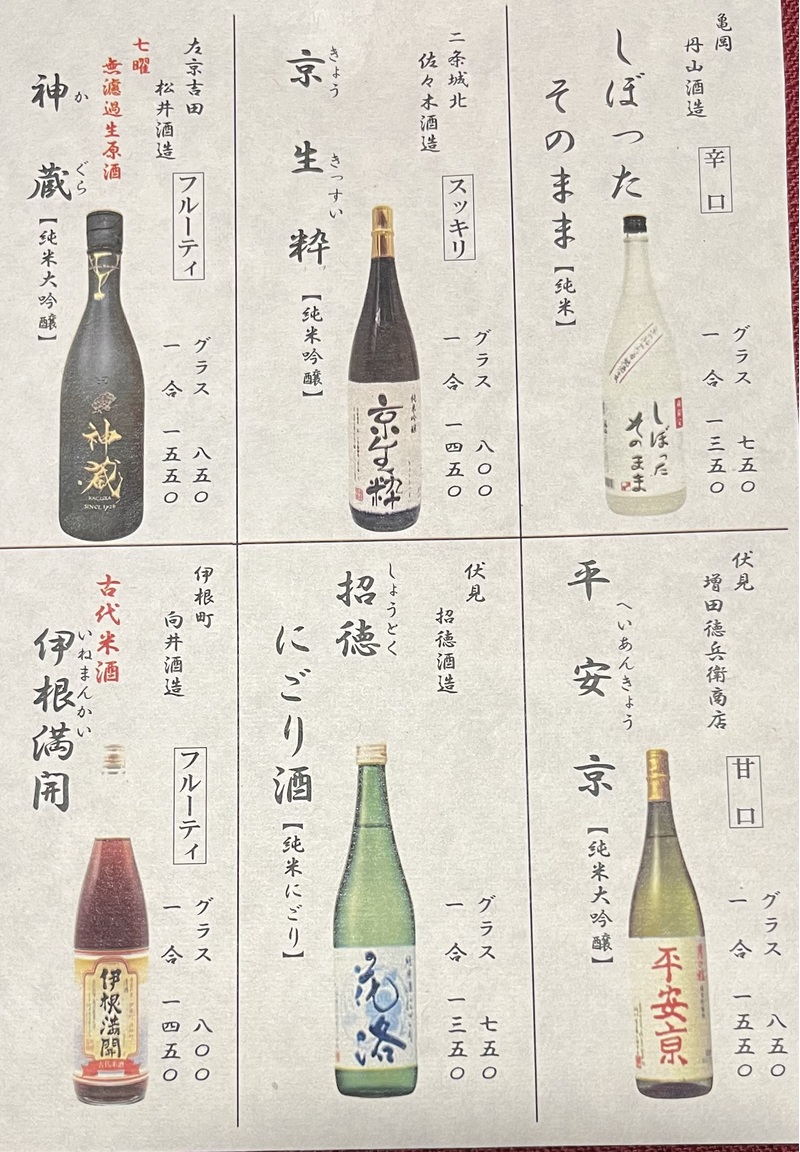 亀岡
丹山酒造
辛口
しぼった
そのまま
【純米】
グラス 七五〇
一合 一三五〇
しぼった
そのまま
二条城北
佐々木酒造
スッキリ
きょう きっすい
京生粋
【純米吟醸】
グラス 八〇〇
一合 一四五〇
純米吟醸
京生粋
左京吉田
松井酒造
フルーティ
七曜
無濾過生原酒
かぐら
神蔵
【純米大吟醸】
グラス 八五〇
一合 一五五〇
神蔵
KAGURA
SINCE 1726
伏見
増田徳兵衛商店
甘口
へいあんきょう
平安京
【純米大吟醸】
グラス 八五〇
一合 一五五〇
平安京
伏見
招徳酒造
しょうとく
招徳
にごり酒
【純米にごり】
グラス 七五〇
一合 一三五〇
花洛
伊根町
向井酒造
フルーティ
古代米酒
いねまんかい
伊根満開
グラス 八〇〇
一合 一四五〇
伊根満開
古代米酒